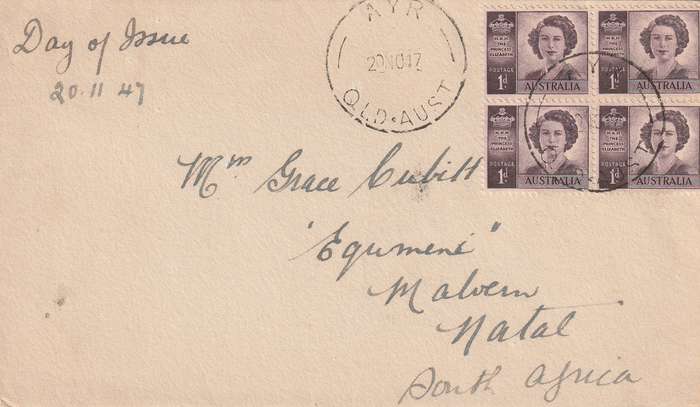 Day of Issue
20·11·47
AYR
20NO47
QLD·AUST
H.R.H.
THE
PRINCESS
ELIZABETH
POSTAGE
1d
AUSTRALIA
H.R.H.
THE
PRINCESS
ELIZABETH
POSTAGE
1d
AUSTRALIA
H.R.H.
THE
PRINCESS
ELIZABETH
POSTAGE
1d
AUSTRALIA
H.R.H.
THE
PRINCESS
ELIZABETH
POSTAGE
1d
AUSTRALIA
Grace Cubitt
"Equmeni"
Malvern
Natal
South Africa